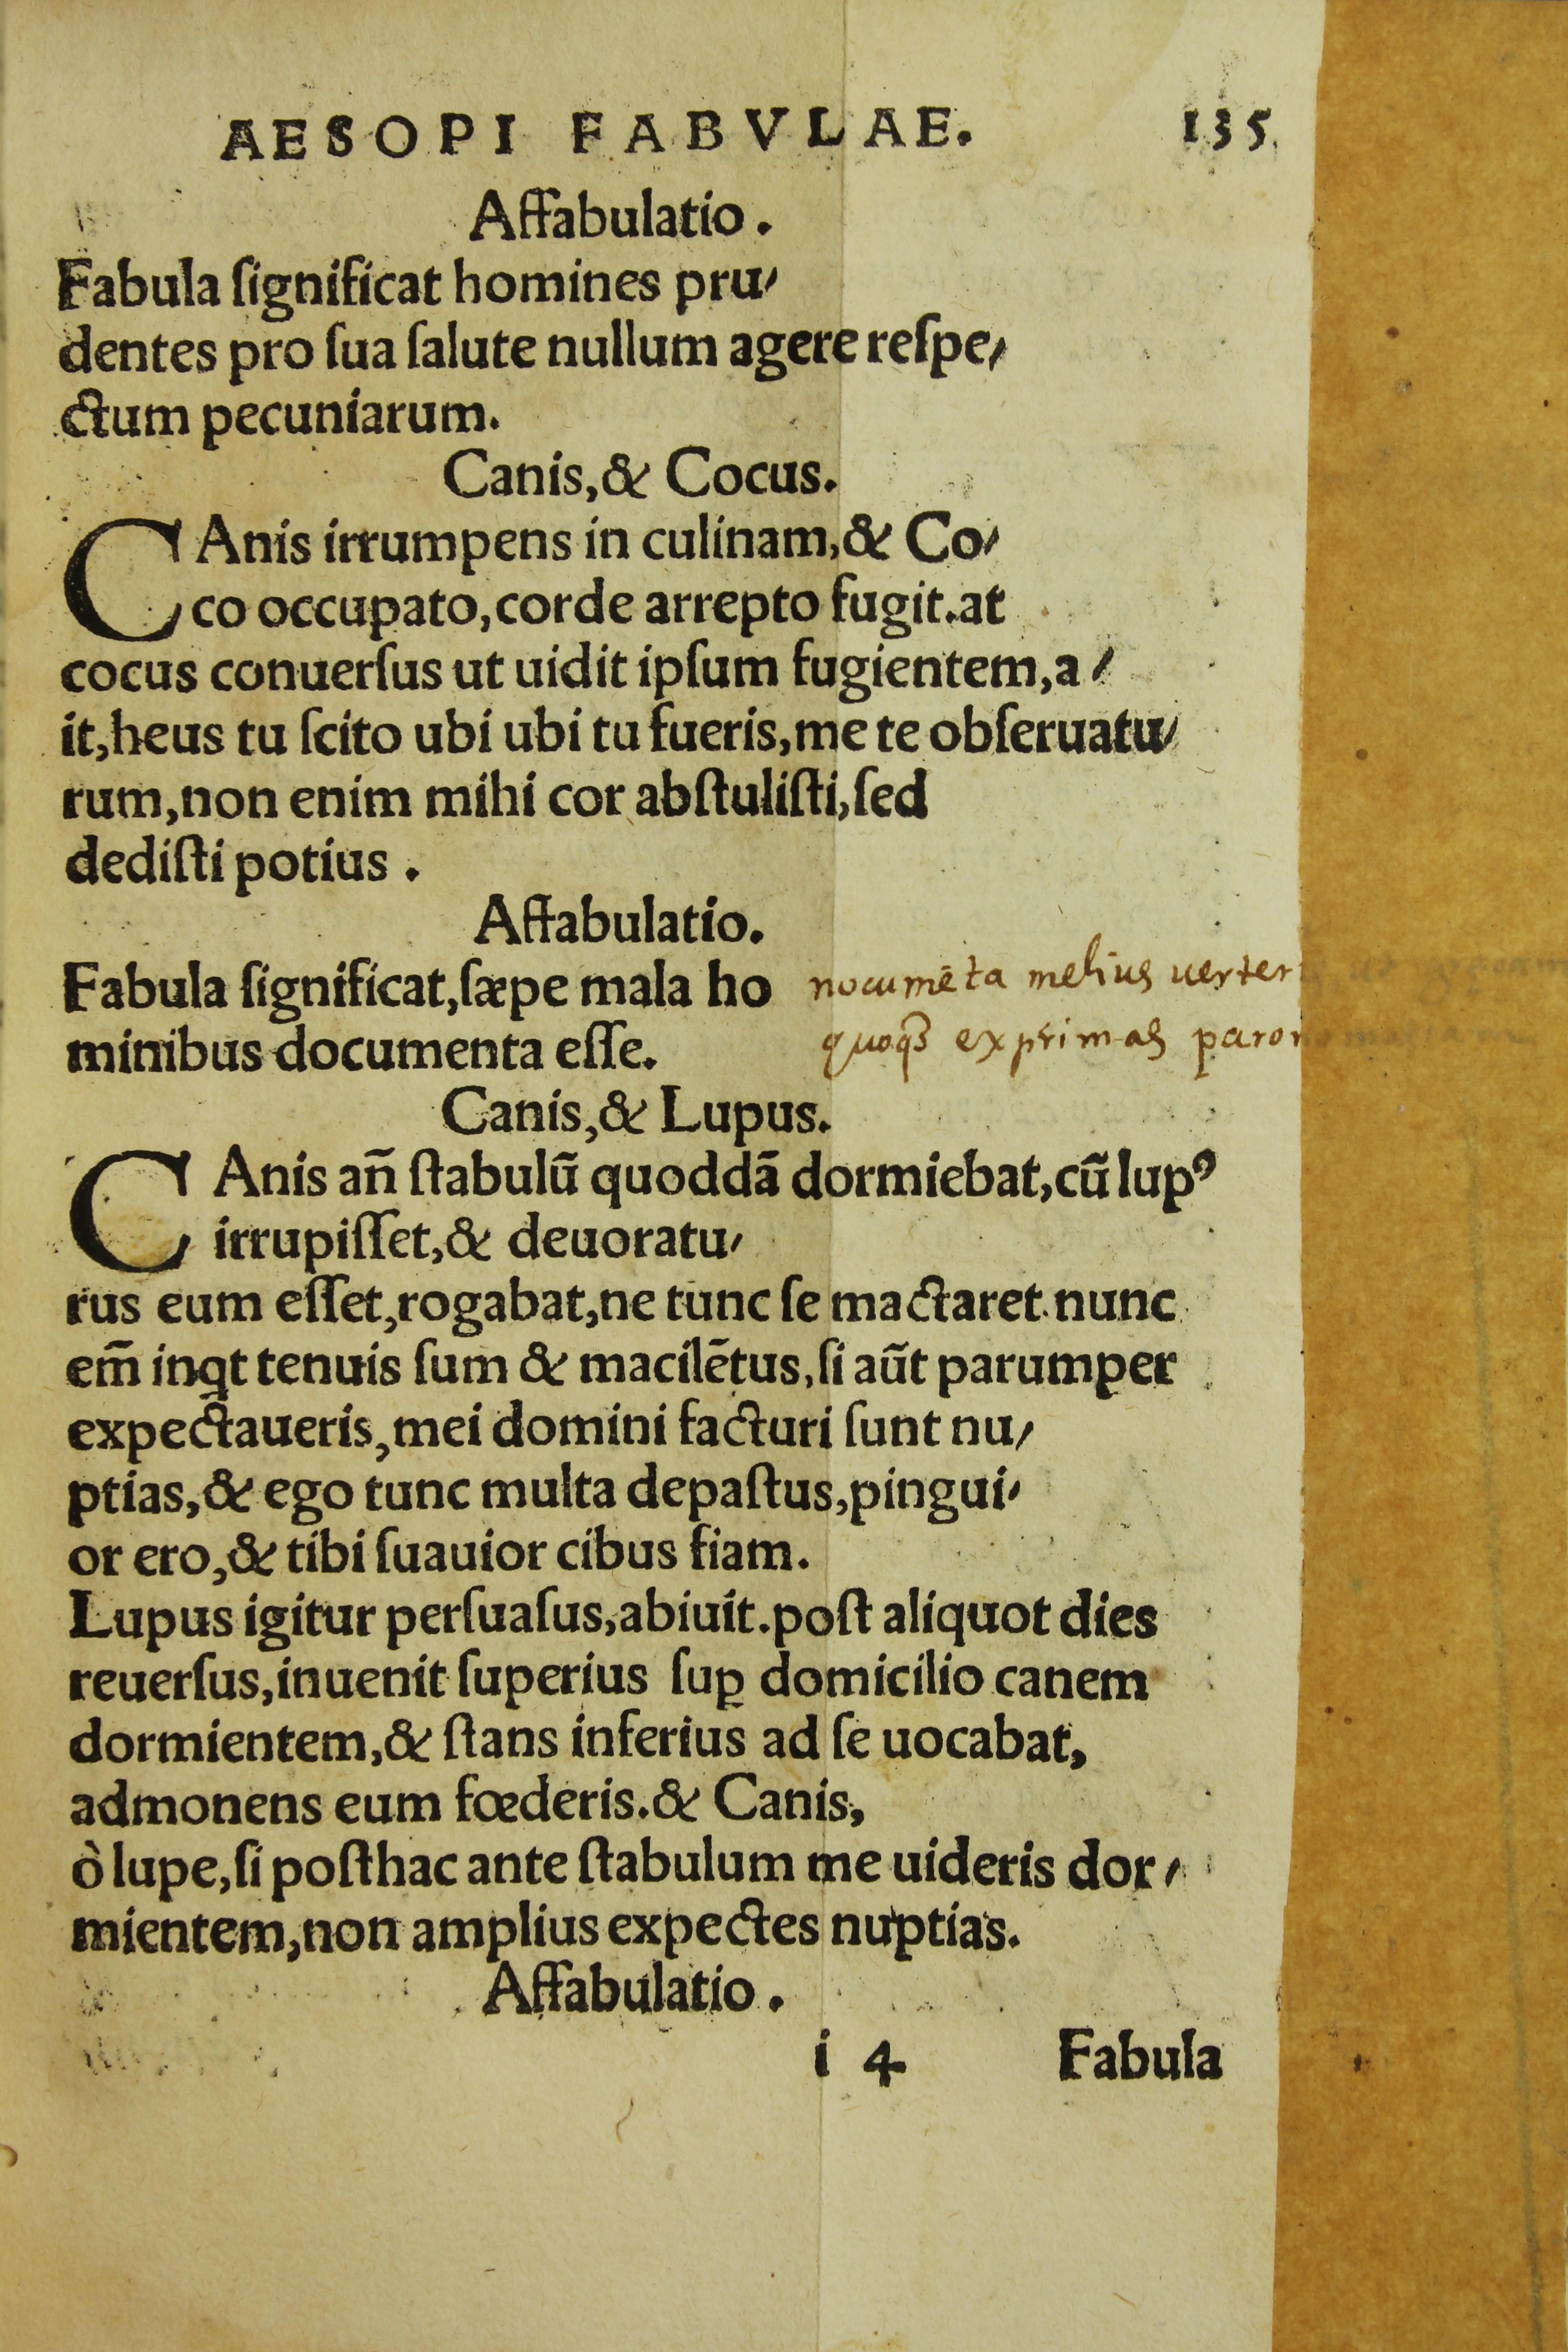 AESOPI FABVLAE. 135.
Affabulatio.
Fabula ſignificat homines pru⸗
dentes pro ſua ſalute nullum agere reſpe⸗
ctum pecuniarum.
Canis,& Cocus.
CAnis irrumpens in culinam,& Co⸗
co occupato,corde arrepto fugit.at
cocus conuerſus ut uidit ipſum fugientem,a⸗
it,heus tu ſcito ubi ubi tu fueris,me te obſeruatu⸗
rum,non enim mihi cor abſtuliſti,ſed
dediſti potius.
Affabulatio.
Fabula ſignificat,ſæpe mala ho
minibus documenta eſſe.
nocumēta melius uerter
quoqꝫ exprimas paro
Canis,& Lupus.
CAnis añ ſtabulū quoddā dormiebat,cū lupꝰ
irrupiſſet,& deuoratu⸗
rus eum eſſet,rogabat,ne tunc ſe mactaret.nunc
em̄ inqt tenuis ſum & macilētus,ſi aūt parumper
expectaueris,mei domini facturi ſunt nu⸗
ptias,& ego tunc multa depaſtus,pingui⸗
or ero,& tibi ſuauior cibus fiam.
Lupus igitur perſuaſus,abiuit.poſt aliquot dies
reuerſus,inuenit ſuperius ſuꝑ domicilio canem
dormientem,& ſtans inferius ad ſe uocabat,
admonens eum fœderis.& Canis,
ò lupe,ſi poſthac ante ſtabulum me uideris dor⸗
mientem,non amplius expectes nuptias.
Affabulatio.
i 4 Fabula